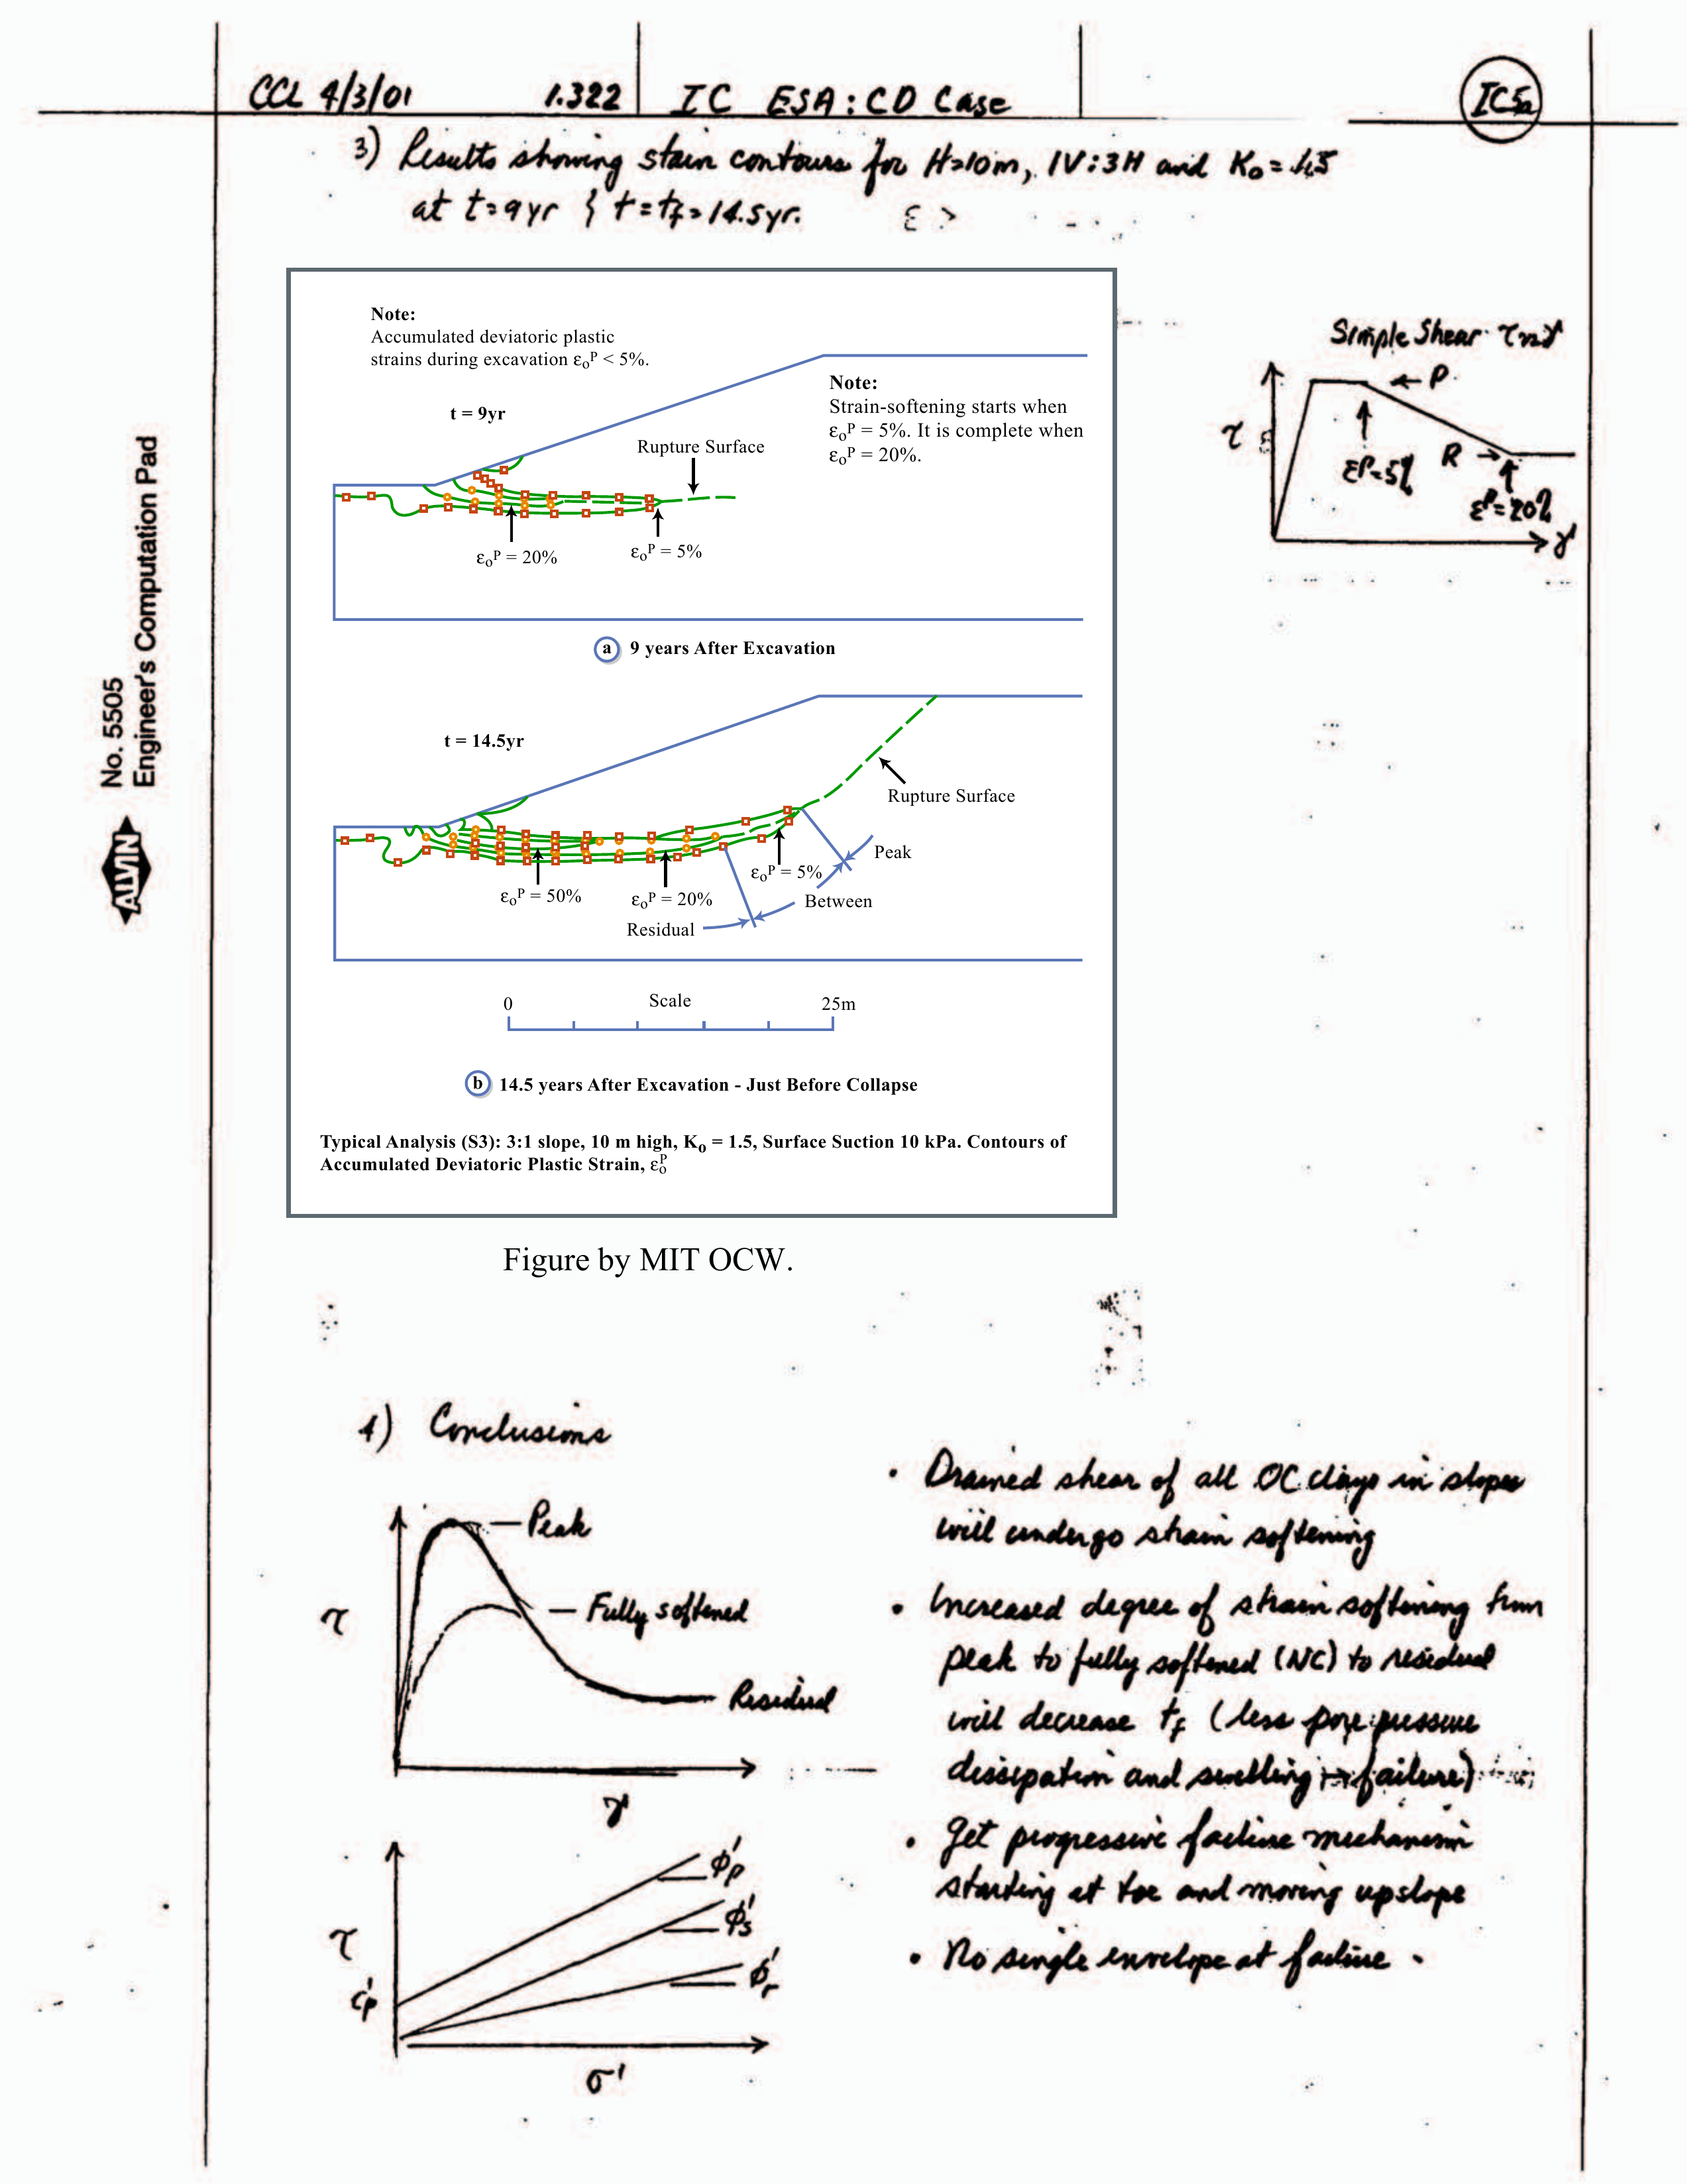 CCL 4/3/01 1.322 IC ESA: CD Case IC5a
3) Results showing stain contours for H=10m, 1V:3H and K₀ = 1.5
at t=9yr & t=tf=14.5yr. ε >
No. 5505
Engineer's Computation Pad
ALVIN
Note:
Accumulated deviatoric plastic
strains during excavation ε₀ᴾ < 5%.
Note:
Strain-softening starts when
ε₀ᴾ = 5%. It is complete when
ε₀ᴾ = 20%.
t = 9yr
Rupture Surface
ε₀ᴾ = 20%
ε₀ᴾ = 5%
a 9 years After Excavation
t = 14.5yr
Rupture Surface
Peak
ε₀ᴾ = 5%
ε₀ᴾ = 50%
ε₀ᴾ = 20%
Between
Residual
0 Scale 25m
b 14.5 years After Excavation - Just Before Collapse
Typical Analysis (S3): 3:1 slope, 10 m high, K₀ = 1.5, Surface Suction 10 kPa. Contours of
Accumulated Deviatoric Plastic Strain, ε₀ᴾ
Simple Shear τ vs γ
P
τ
εᴾ=5%
R
εᴾ=20%
γ
Figure by MIT OCW.
4) Conclusions
Peak
Fully softened
τ
Residual
γ
ϕ'p
ϕ's
τ
ϕ'r
c'p
σ'
• Drained shear of all OC clays in slopes
will undergo strain softening
• Increased degree of strain softening from
peak to fully softened (NC) to residual
will decrease tf (less pore pressure
dissipation and swelling → failure)
• Get progressive failure mechanism
starting at toe and moving upslope
• No single envelope at failure